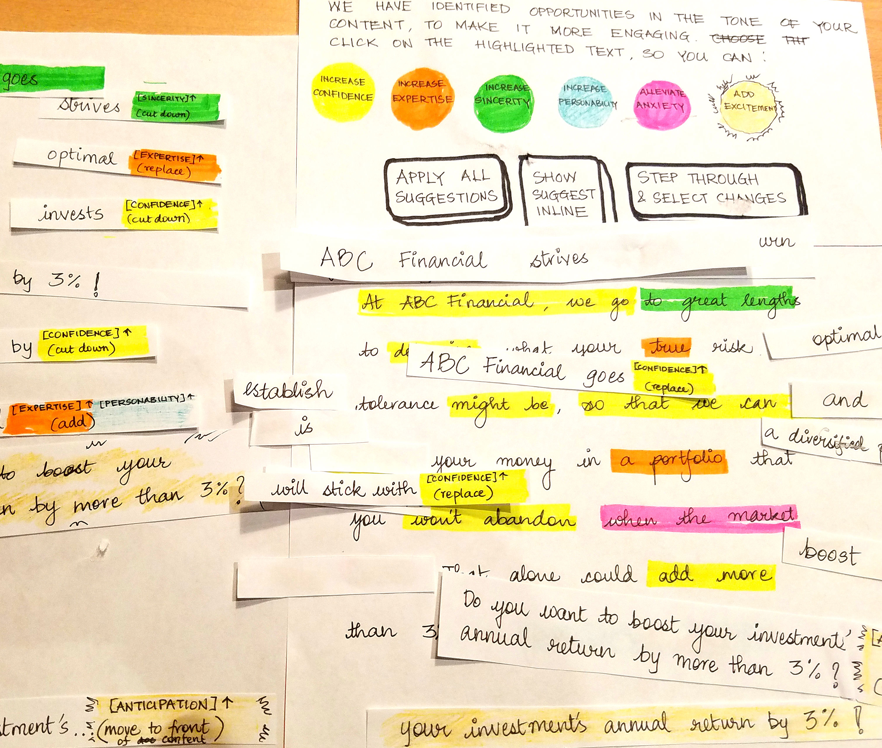 WE HAVE IDENTIFIED OPPORTUNITIES IN THE TONE OF YOUR
CONTENT, TO MAKE IT MORE ENGAGING. CHOOSE THE
CLICK ON THE HIGHLIGHTED TEXT, SO YOU CAN:
INCREASE CONFIDENCE
INCREASE EXPERTISE
INCREASE SINCERITY
INCREASE PERSONABILITY
ALLEVIATE ANXIETY
ADD EXCITEMENT
APPLY ALL
SUGGESTIONS
SHOW
SUGGEST
INLINE
STEP THROUGH
& SELECT CHANGES
goes
strives [SINCERITY]↑
(cut down)
optimal [EXPERTISE]↑
(replace)
invests [CONFIDENCE]↑
(cut down)
by 3%!
by [CONFIDENCE]↑
(cut down)
[EXPERTISE]↑ [PERSONABILITY]↑
(add)
to boost your
by more than 3%?
[ANTICIPATION]↑
(move to front
of content)
ABC Financial strives
At ABC Financial, we go to great lengths
to what your true risk
optimal
ABC Financial goes [CONFIDENCE]↑
(replace)
establish
tolerance might be, so that we can
and
is
a diversified
your money in a portfolio that
will stick with [CONFIDENCE]↑
(replace)
you won't abandon when the market
boost
That alone could add more
than 3
Do you want to boost your investment's
annual return by more than 3%?
your investment's annual return by 3%!